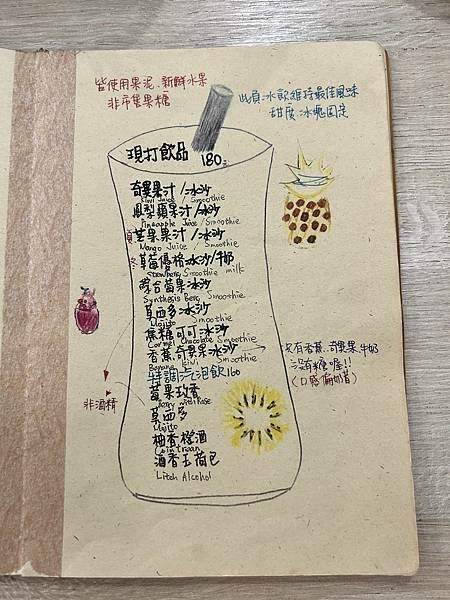 皆使用果泥、新鮮水果
非市售果糖
此頁:冰飲維持最佳風味
甜度、冰塊固定
現打飲品 180元
奇異果汁/冰沙
Kiwi Juice / Smoothie
鳳梨蘋果汁/冰沙
Pineapple Juice / Smoothie
芒果果汁/冰沙
Mango Juice / Smoothie
草莓優格冰沙/牛奶
Smoothie milk
綜合莓果冰沙
Synthesis Berry Smoothie
莫西多冰沙
Mojito Smoothie
焦糖可可冰沙
Carmel Chocolate Smoothie
香蕉、奇異果冰沙
Banana kiwi Smoothie
只有香蕉、奇異果、牛奶
沒有糖喔!!
(口感偏清)
特調汽泡飲160
莓果玫香
Berry with Rose
莫西多
Mojito
非酒精
柚香橙酒
Cointreau
酒香玉荷包
Litch Alcohol